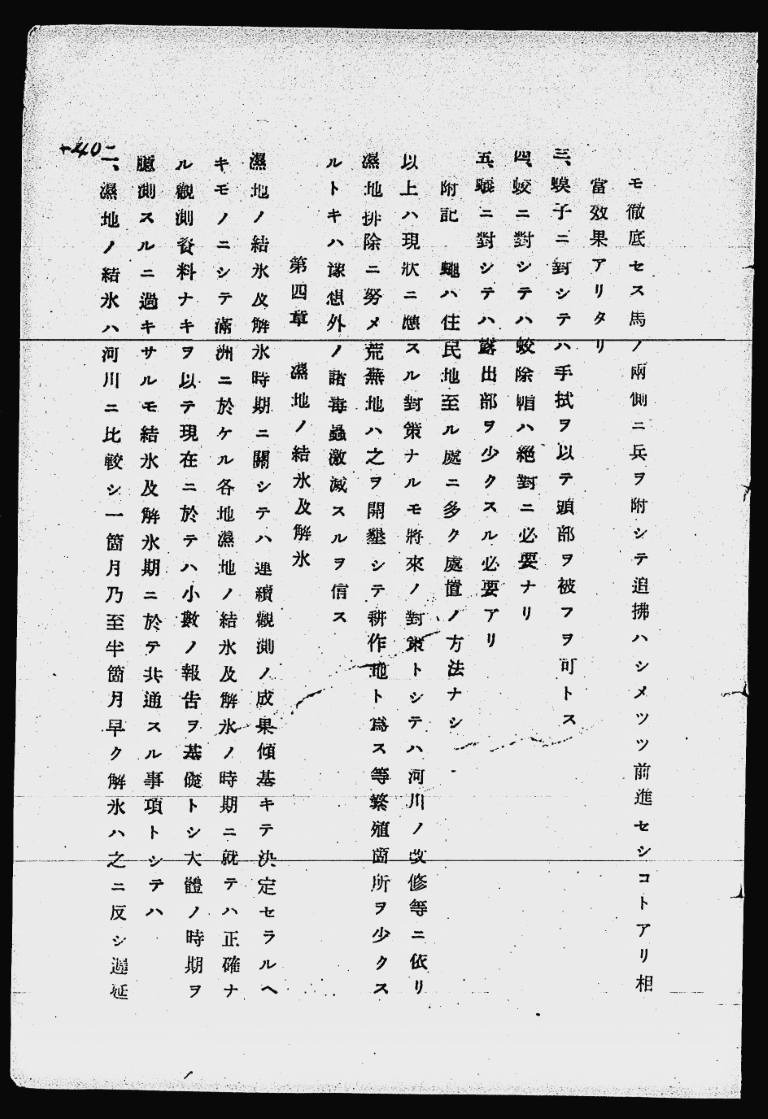 モ徹底セス馬ノ兩側ニ兵ヲ附シテ追拂ハシメツツ前進セシコトアリ相
當效果アリタリ
三、蟆子ニ對シテハ手拭ヲ以テ頭部ヲ被フヲ可トス
四、蛟ニ對シテハ蛟除帽ハ絕對ニ必要ナリ
五、蟻ニ對シテハ露出部ヲ少クスル必要アリ
附記 蠅ハ住民地至ル處ニ多ク處置ノ方法ナシ
以上ハ現狀ニ應スル對策ナルモ將來ノ對策トシテハ河川ノ改修等ニ依リ
濕地排除ニ努メ荒蕪地ハ之ヲ開墾シテ耕作地ト爲ス等繁殖箇所ヲ少クス
ルトキハ豫想外ノ諸毒蟲激減スルヲ信ス
第四章 濕地ノ結氷及解氷
濕地ノ結氷及解氷時期ニ關シテハ連續觀測ノ成果傾基キテ決定セラルヘ
キモノニシテ滿洲ニ於ケル各地濕地ノ結氷及解氷ノ時期ニ就テハ正確ナ
ル觀測資料ナキヲ以テ現在ニ於テハ小數ノ報告ヲ基礎トシ大體ノ時期ヲ
臆測スルニ過キサルモ結氷及解氷期ニ於テ共通スル事項トシテハ
一、濕地ノ結氷ハ河川ニ比較シ一箇月乃至半箇月早ク解氷ハ之ニ反シ遲延
40